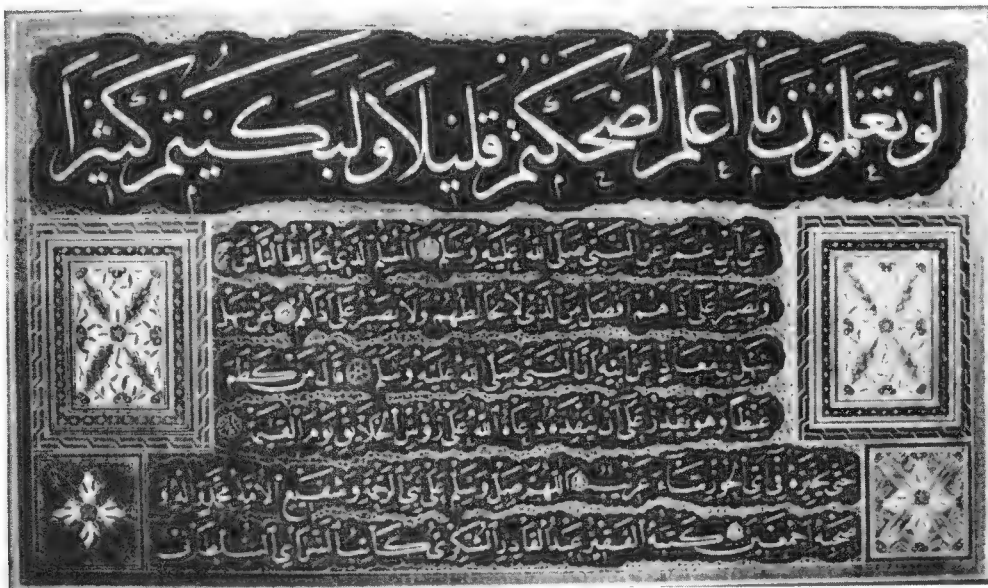 لو تعلمون ما أعلم لضحكتم قليلا ولبكيتم كثيرا
عن ابن عمر عن النبي صلى الله عليه وسلم المسلم الذي يخالط الناس
ويصبر على أذاهم أفضل من الذي لا يخالطهم ولا يصبر على أذاهم عن سهل
سهل بن معاذ عن أبيه أن النبي صلى الله عليه وسلم قال من كظم
غيظا وهو يقدر على أن ينفذه دعاه الله على رؤس الخلائق يوم القيمة
حتى يخيره في أي الحور شاء اللهم صل وسلم على نبي الرحمة وشفيع الأمة محمد وآله و
صحبه أجمعين كتبه الفقير عبد القادر الشكري كاتب السراي السلطاني